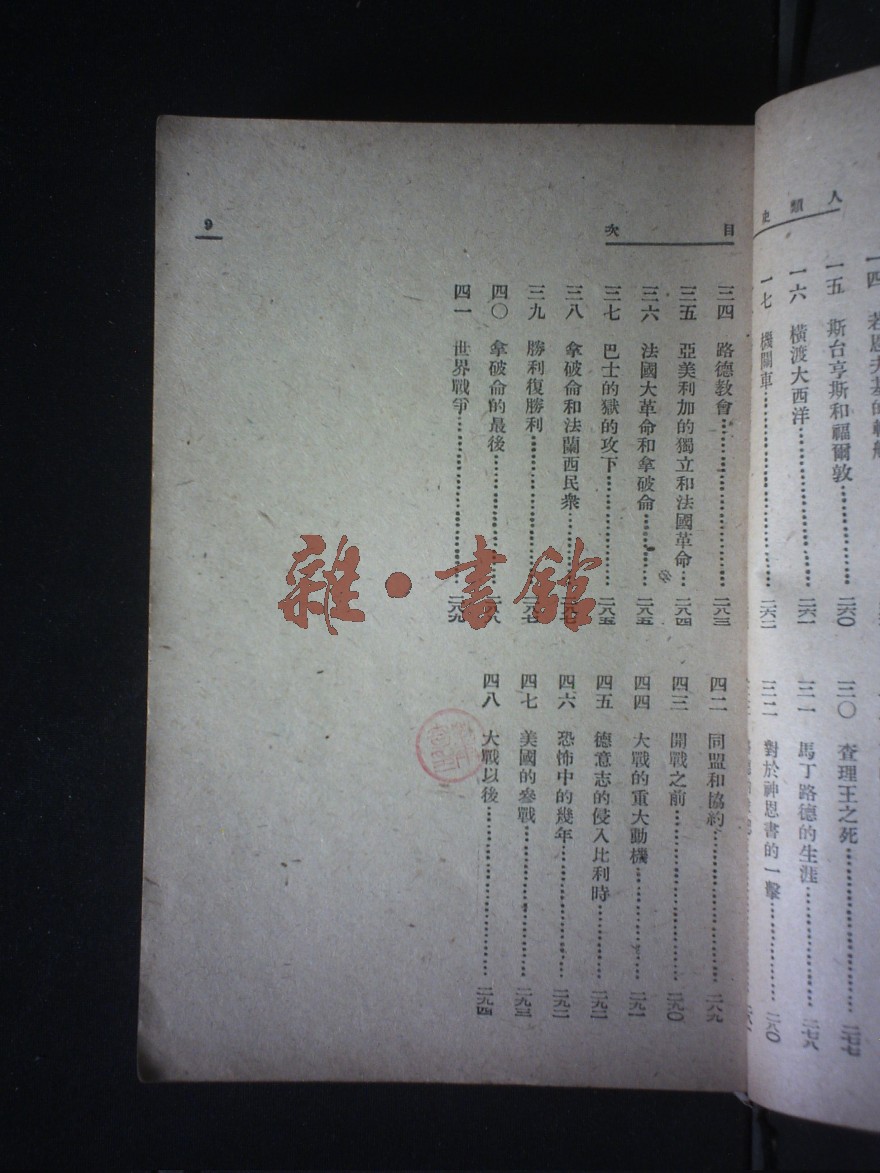 人類史
一五 斯台亨斯和福爾敦………二六〇
一六 橫渡大西洋………二六一
一七 機關車………二六二
三〇 查理王之死………二七七
三一 馬丁路德的生涯………二七八
三二 對於神恩書的一擊………二八〇
目次
三四 路德教會………二八三
三五 亞美利加的獨立和法國革命…二八四
三六 法國大革命和拿破侖………二八五
三七 巴士的獄的攻下………二八五
三八 拿破侖和法蘭西民衆………二八七
三九 勝利復勝利………二八七
四〇 拿破侖的最後………二八八
四一 世界戰爭………二八九
四二 同盟和協約………二八九
四三 開戰之前………二九〇
四四 大戰的重大動機………二九一
四五 德意志的侵入比利時………二九二
四六 恐怖中的幾年………二九二
四七 美國的參戰………二九三
四八 大戰以後………二九四
9
雜·書館